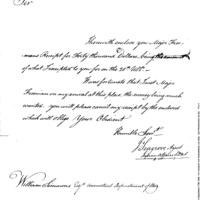 Sir
I herewith enclose you Major Free-
mans Receipt for Thirty thousand Dollars, being the amount
of what I receipted to you for on the 20th Ulto.
It was fortunate that I met Major
Freeman on my arrival at this place the money being much
wanted. you will please cancel my receipt by the enclosed
which will oblige Your Obedient
Humble Servt.
J Seagrove Agent
Indian Affairs
William Simmons Esqr. Accountant Department of War